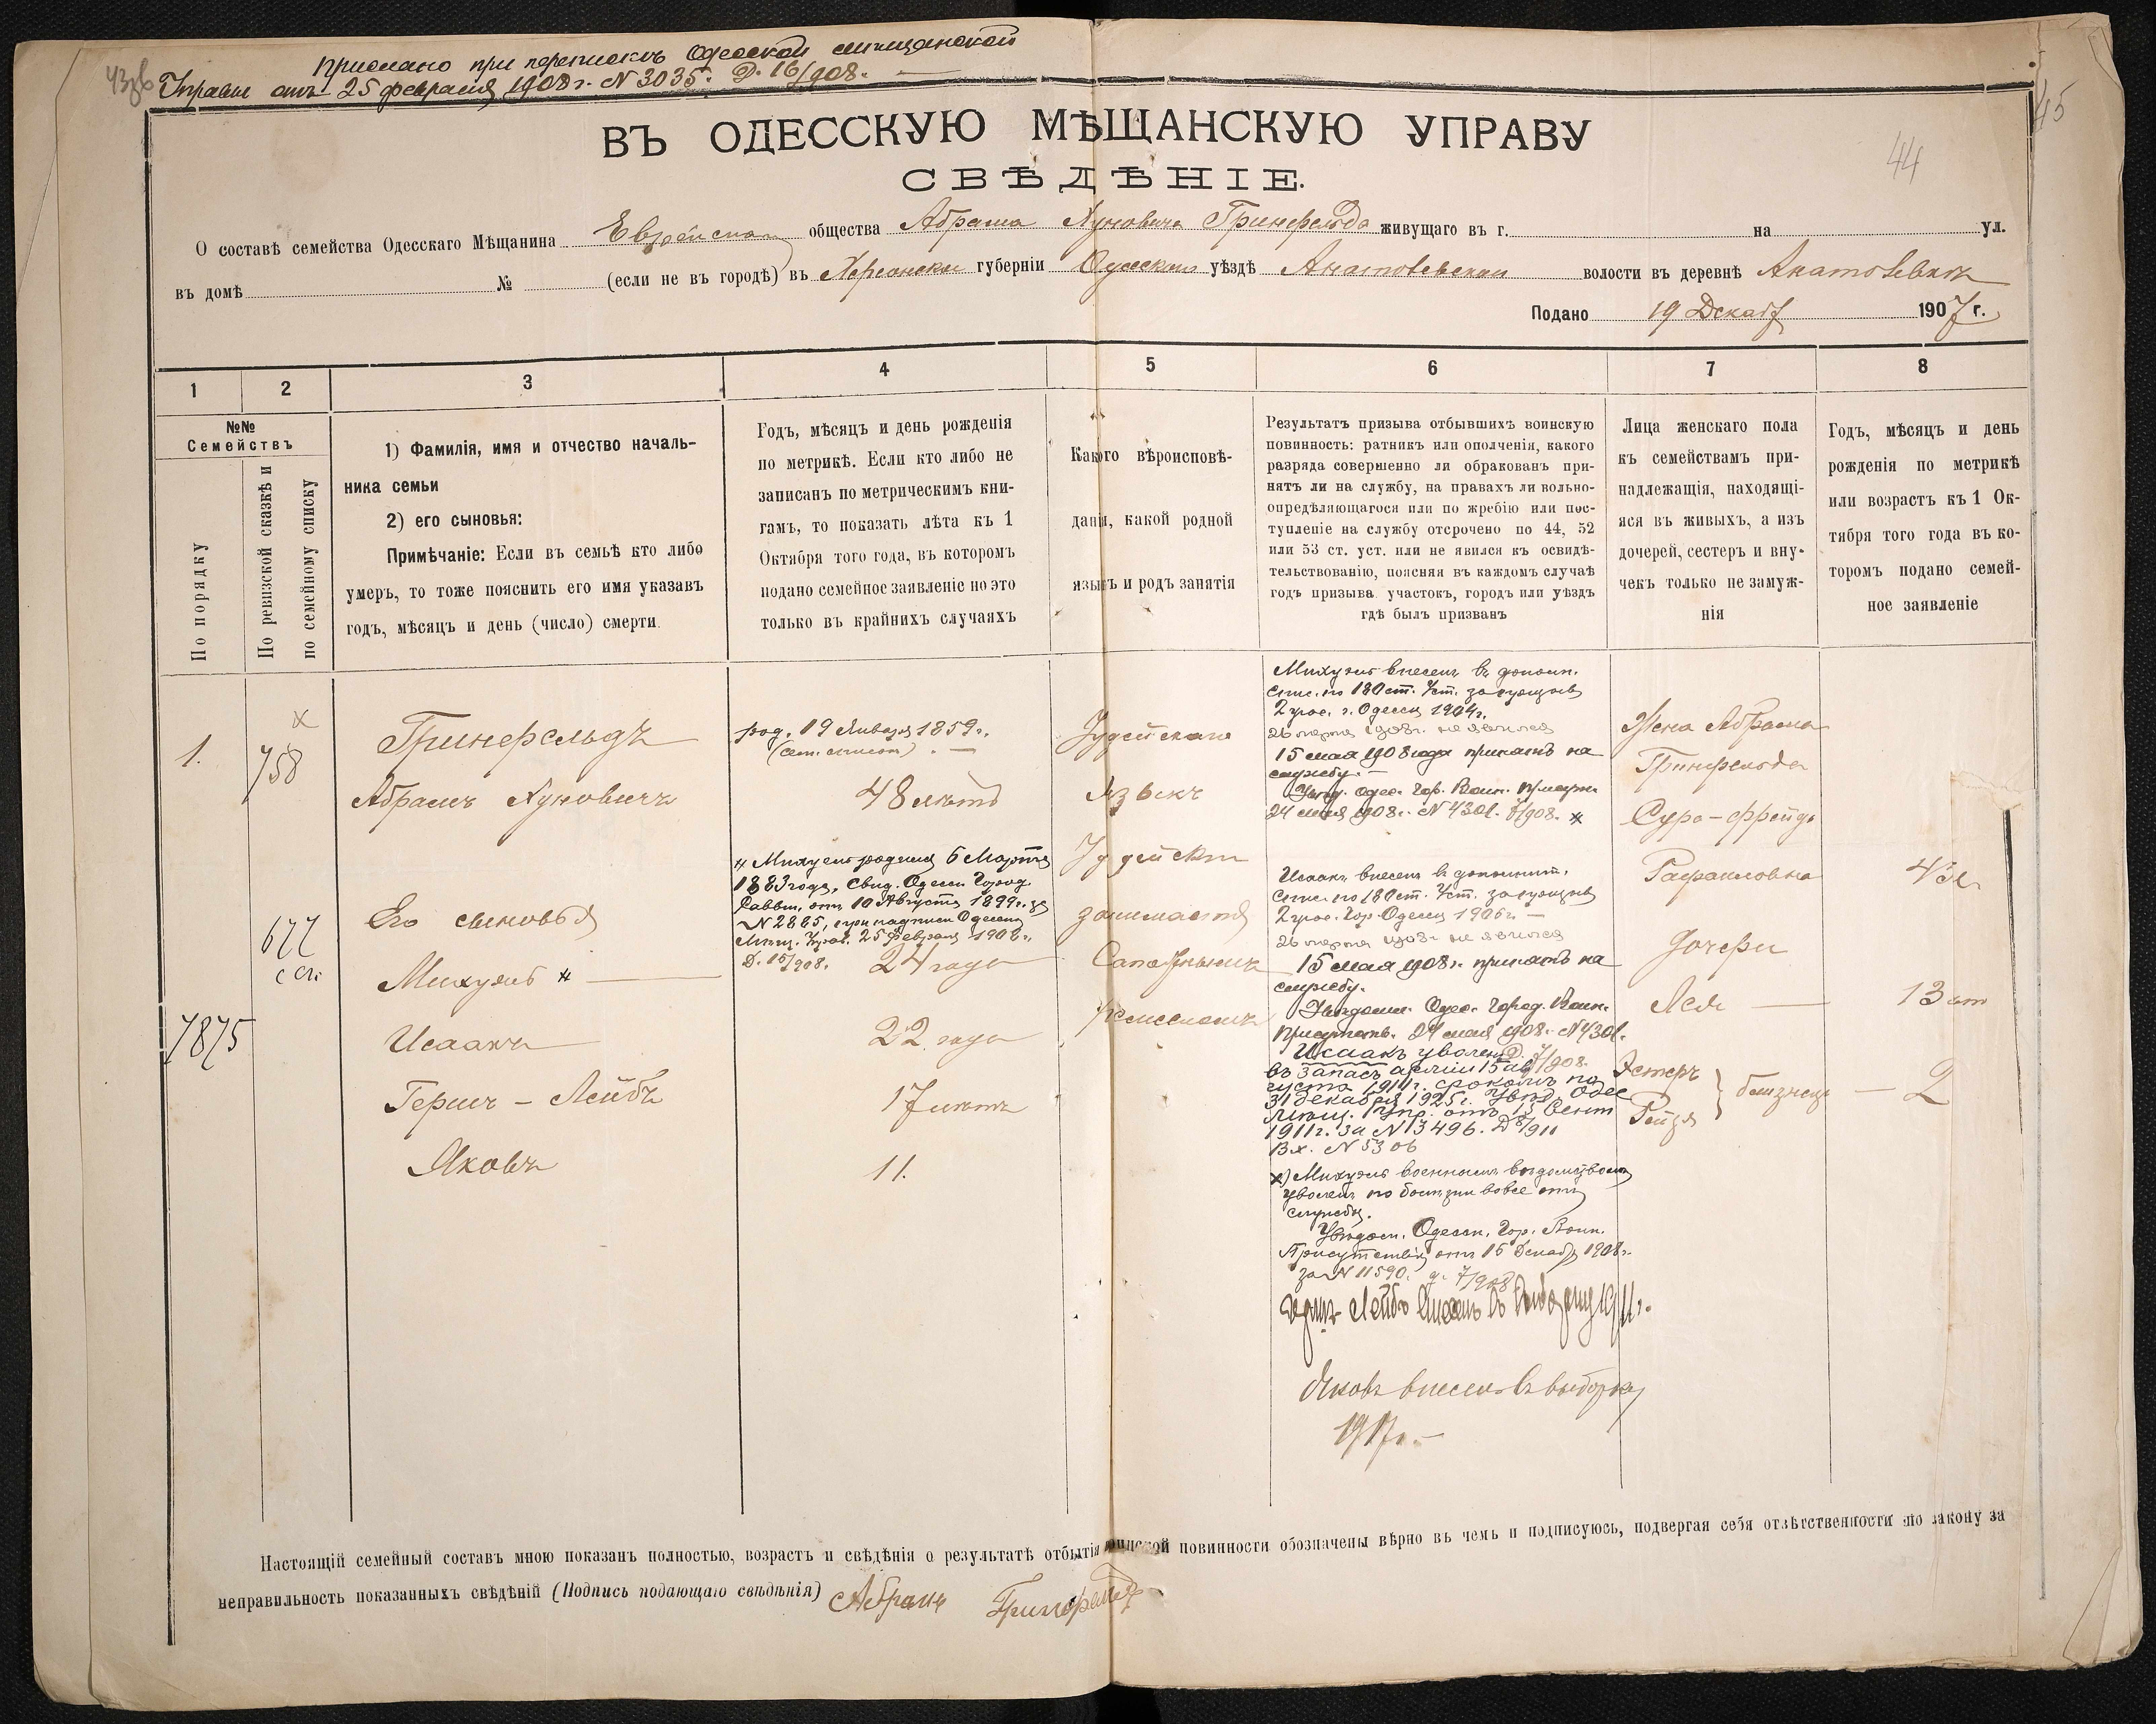 Прислано при переписке Одесской мещанской
Управы отъ 25 февраля 1908 г. N 3035. Д. 16/908.
45
44
ВЪ ОДЕССКУЮ МѢЩАНСКУЮ УПРАВУ
СВѢДѢНІЕ.
О составѣ семейства Одесскаго Мѣщанина Еврейскаго общества Абрама Хуновича Гринфельда живущаго въ г. на ул.
въ домѣ № (если не въ городѣ) въ Херсонской губерніи Одесскаго уѣздѣ Анатольевской волости въ деревнѣ Анатольевка
Подано 19 Декабр 1907 г.
1 2 3 4 5 6 7 8
№№
Семействъ
По порядку
По ревизской сказкѣ и
по семейному списку
1) Фамилія, имя и отчество началь-
ника семьи
2) его сыновья:
Примѣчаніе: Если въ семьѣ кто либо
умеръ, то тоже пояснить его имя указавъ
годъ, мѣсяцъ и день (число) смерти.
Годъ, мѣсяцъ и день рожденія
по метрикѣ. Если кто либо не
записанъ по метрическимъ кни-
гамъ, то показать лѣта къ 1
Октября того года, въ которомъ
подано семейное заявленіе но это
только въ крайнихъ случаяхъ
Какого вѣроисповѣ-
данія, какой родной
языкъ и родъ занятія
Результатъ призыва отбывшихъ воинскую
повинность: ратникъ или ополченія, какого
разряда совершенно ли обракованъ при-
нятъ ли на службу, на правахъ ли вольно-
опредѣляющагося или по жребію или пос-
тупленіе на службу отсрочено по 44, 52
или 53 ст. уст. или не явился къ освидѣ-
тельствованію, поясняя въ каждомъ случаѣ
годъ призыва участокъ, городъ или уѣздъ
гдѣ былъ призванъ
Лица женскаго пола
къ семействамъ при-
надлежащія, находящі-
яся въ живыхъ, а изъ
дочерей, сестеръ и вну-
чекъ только не замуж-
нія
Годъ, мѣсяцъ и день
рожденія по метрикѣ
или возрастъ къ 1 Ок-
тября того года въ ко-
торомъ подано семей-
ное заявленіе
1.
х
758
677
7875
Гринфельдъ
Абрамъ Хуновичъ
Его сыновья
Михуель х
Исаакъ
Гершъ - Лейбъ
Яковъ
род. 19 Января 1859 г.
48 лѣтъ
х Михуель родился 6 Марта
1883 года, свид. Одесск. Город.
Раввин. отъ 10 Августа 1899 г. за
N 2865, при надписи Одесск.
Мѣщ. Управ. 25 февраля 1908 г.
Д. 16/908. 24 года
22 года
17 лѣтъ
11.
Іудейскаго
Языкъ
Іудейскій
занимается
Михуель внесенъ въ дополн.
спис. по 180 ст. Уст. за
2 г. Одессы 1904 г.
26 марта 1908 г. не явился
15 мая 1908 года принятъ на
службу. —
Увѣд. Одес. Гор. Воин. Присут.
24 мая 1908 г. N 4301. 7/908. х
Исаакъ внесенъ въ дополнит.
спис. по 180 ст. Уст. за
2 Гор. Одессы 1906 г. —
26 марта 1908 г. не явился
15 мая 1908 г. принятъ на
службу.
Увѣдомл. Одес. Город. Воин.
Присутств. 24 мая 1908 г. N 4301.
Д. 7/908.
Исаакъ уволенъ
въ запасъ арміи 15 ав
густа 1911 г. срокомъ по
31 декабря 1925 г. Увѣд. Одес
Мѣщ. Упр. отъ 13 Сент
1911 г. за N 13496. Д 8/911
Вх. N 5306
х) Михуель военнымъ вѣдомствомъ
уволенъ по болѣзни вовсе отъ
службы.
Увѣдом. Одесск. Гор. Воин.
Присутствія отъ 15 Декабр 1908 г.
за N 11590. д. 7/908
Гершъ-Лейбъ внесенъ въ выборку 1911 г.
Яковъ внесенъ въ выборку
1917 г. —
Жена Абрама
Гринфельда
Сура-Фрейда
Рафаиловна
Дочери
Лея
Эстеръ
Рейзя
близнецы
13 лѣт
2
Настоящій семейный составъ мною показанъ полностью, возрастъ и свѣдѣнія о результатѣ отбытія воинской повинности обозначены вѣрно въ чемъ и подписуюсь, подвергая себя отвѣтственности по закону за
неправильность показанныхъ свѣдѣній (Подпись подающаго свѣдѣнія) Абрамъ Гринфельдъ